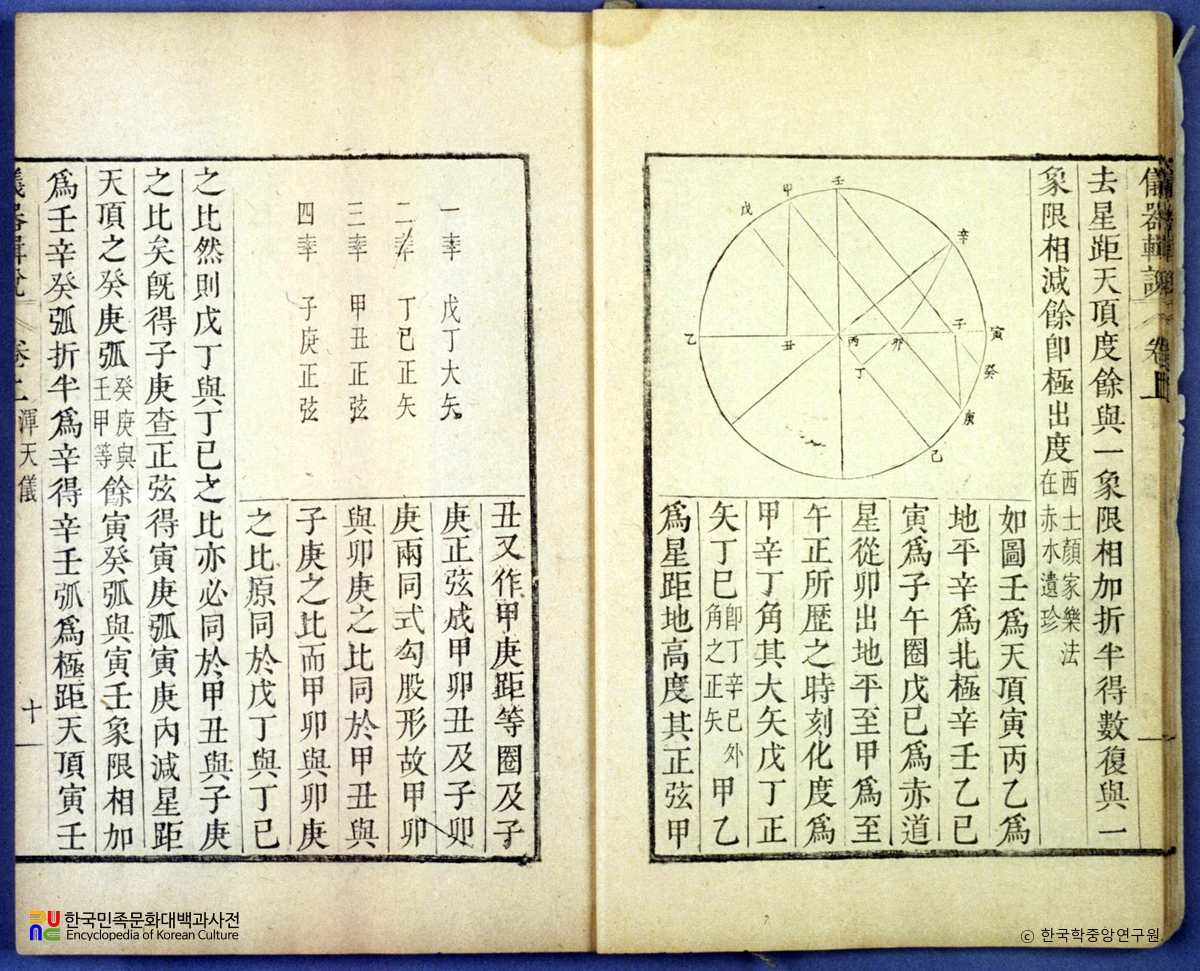 儀器輯說 卷上
去星距天頂度餘與一象限相加折半得數復與一
象限相減餘卽極出度西士顏家樂法在赤水遺珍
甲
壬
戊
辛
乙
丑
丙
卯
子
寅
丁
癸
庚
己
如圖壬爲天頂寅丙乙爲
地平辛爲北極辛壬乙巳
寅爲子午圈戊巳爲赤道
星從卯出地平至甲爲至
午正所歷之時刻化度爲
甲辛丁角其大矢戊丁正
矢丁巳卽丁辛巳外角之正矢甲乙
爲星距地高度其正弦甲
丑又作甲庚距等圈及子
庚正弦成甲卯丑及子卯
庚兩同式勾股形故甲卯
與卯庚之比同於甲丑與
子庚之比而甲卯與卯庚
之比原同於戊丁與丁巳
一率 戊丁大矢
二率 丁巳正矢
三率 甲丑正弦
四率 子庚正弦
之比然則戊丁與丁巳之比亦必同於甲丑與子庚
之比矣旣得子庚查正弦得寅庚弧寅庚內減星距
天頂之癸庚弧癸庚與壬甲等餘寅癸弧與寅壬象限相加
爲壬辛癸弧折半爲辛得辛壬弧爲極距天頂寅壬
儀器輯說 卷上 渾天儀 十一
한국민족문화대백과사전
Encyclopedia of Korean Culture
© 한국학중앙연구원